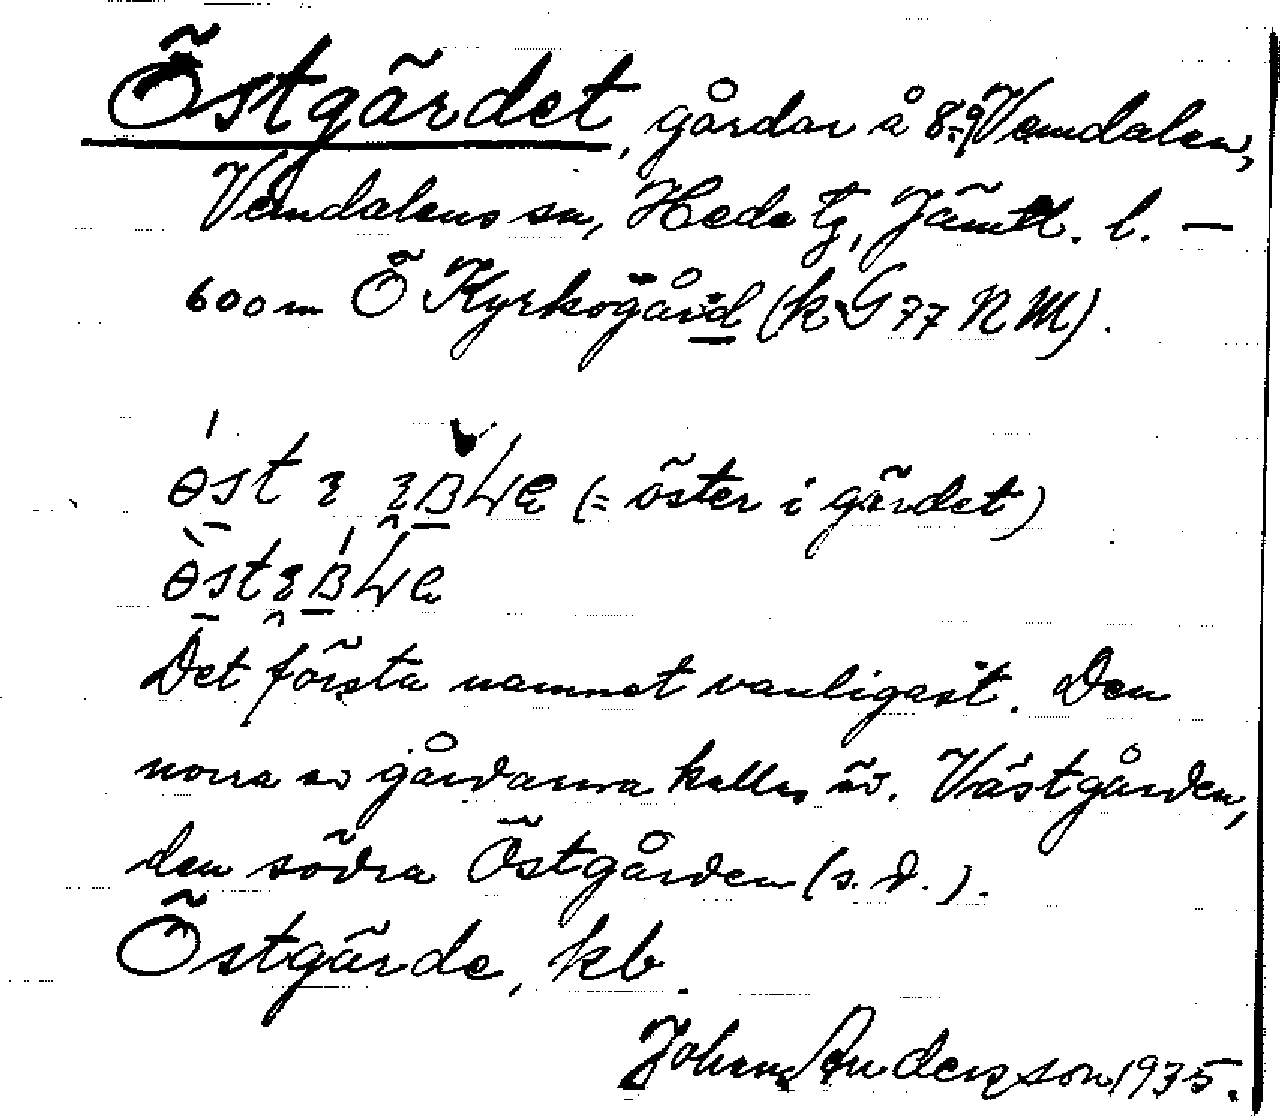 Östgärdet, gårdar å 8:9 Vemdalen,
Vemdalens sn, Hede tg, Jämtl. l. —
600 m Ö Kyrkogård (k G 77 N M).
(= öster i gärdet)
Det första namnet vanligast. Den
norra av gårdarna kallas äv. Västgården,
den södra Östgården (s. d.).
Östgärde, kb.
Johan Anderzson 1935.